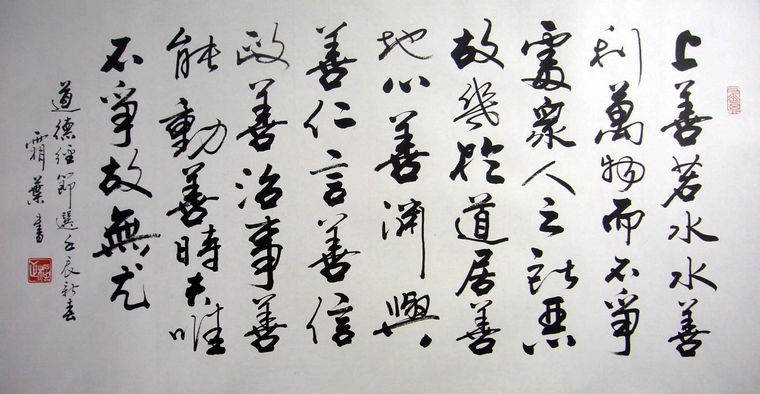 上善若水水善
利萬物而不爭
處眾人之所惡
故幾於道居善
地心善渊與
善仁言善信
政善治事善
能動善時夫唯
不爭故無尤
道德經節選壬辰新春
霜葉書